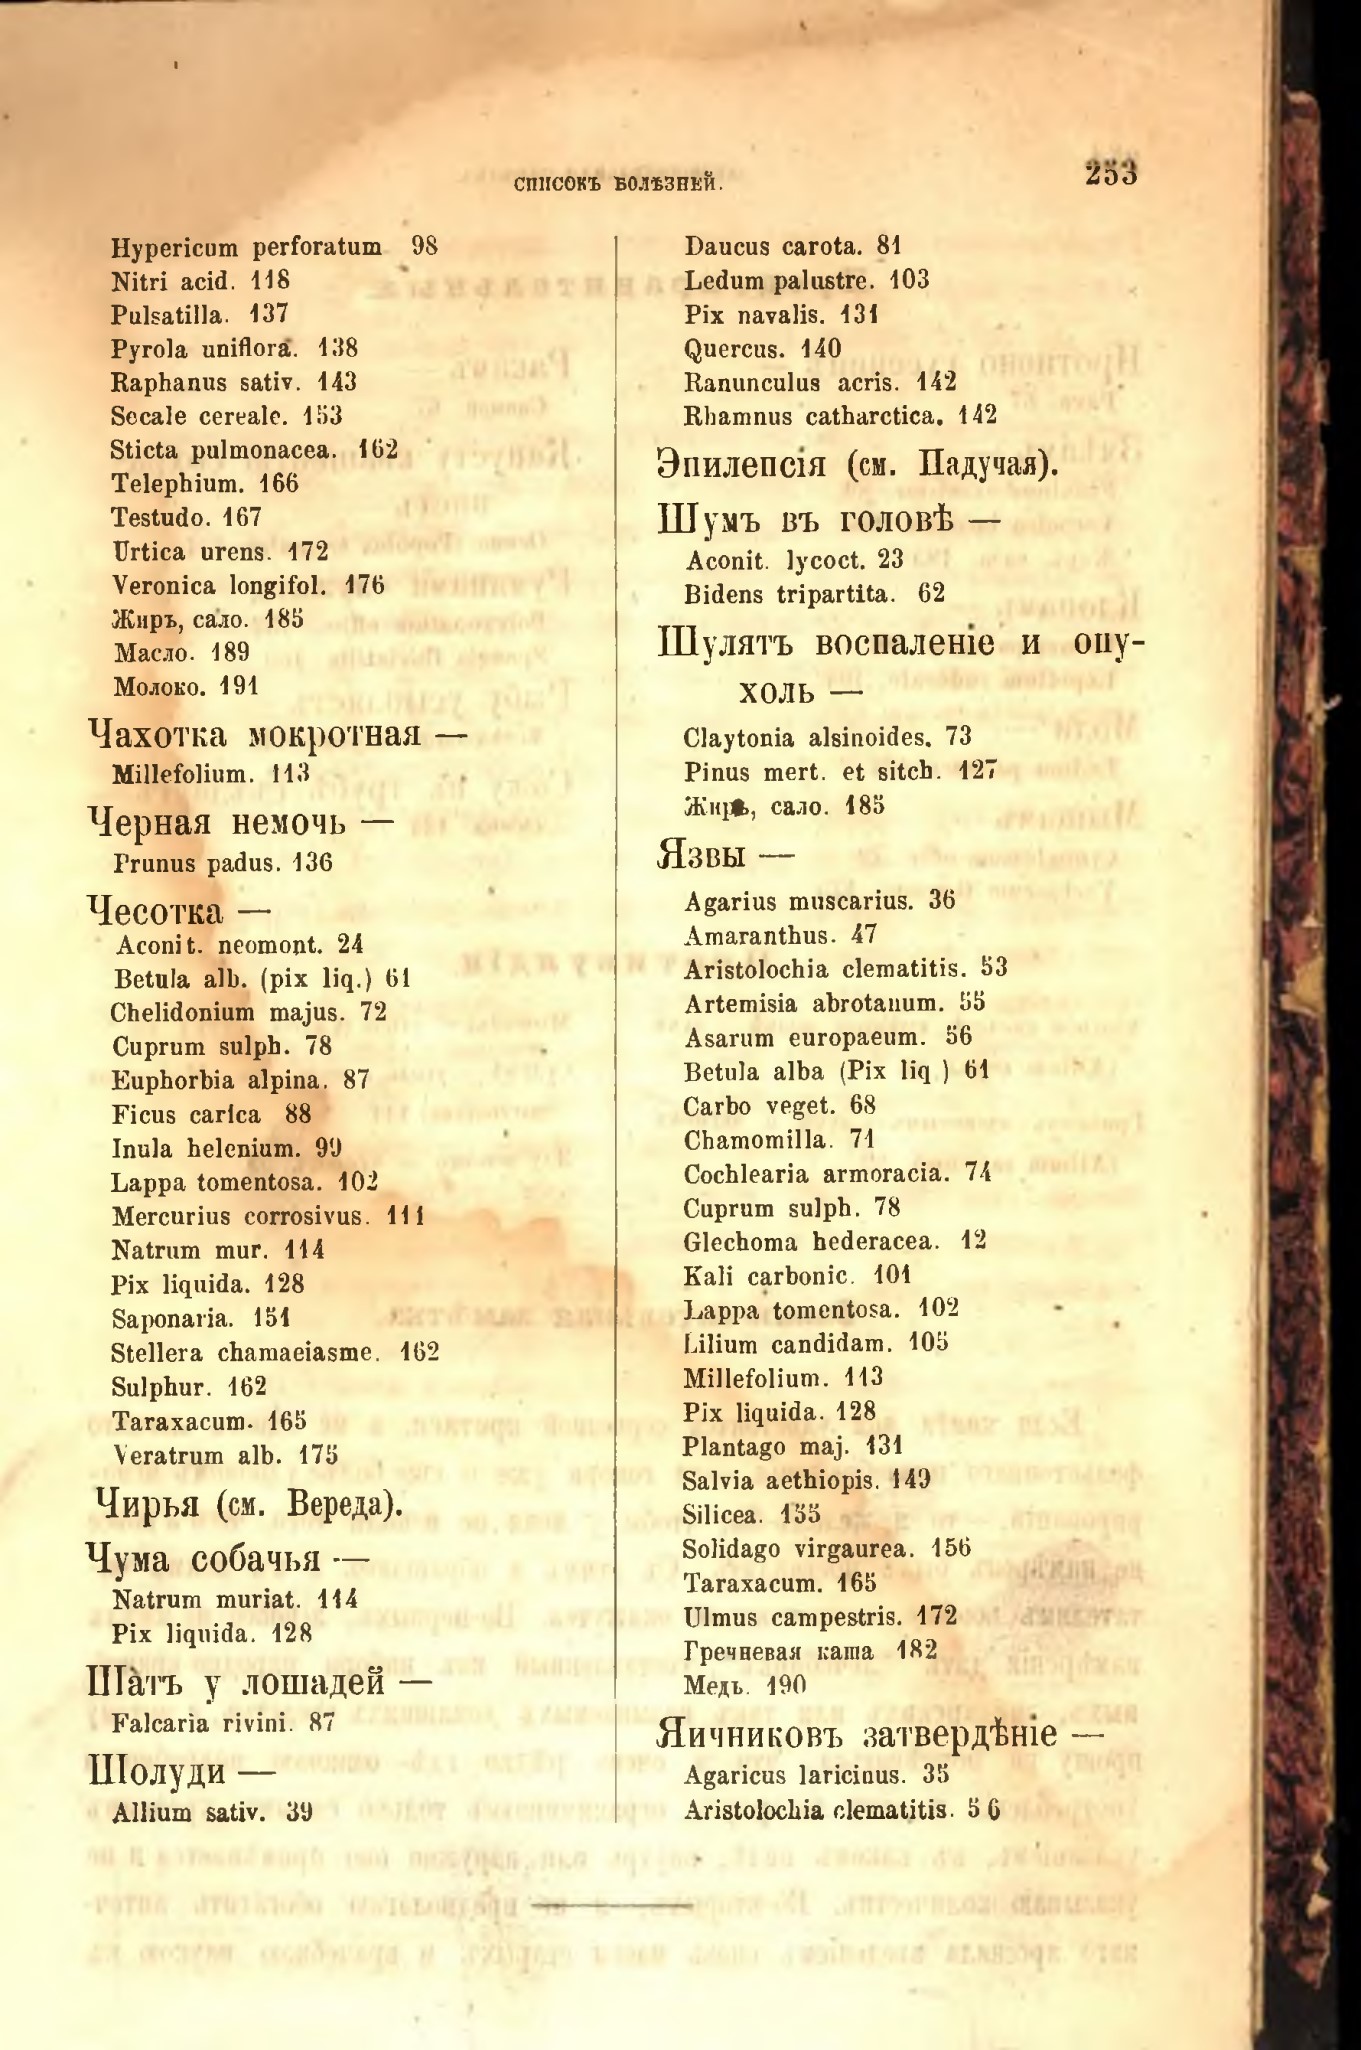 СПИСОКЪ БОЛѢЗНЕЙ.
253
Hypericum perforatum 98
Nitri acid. 118
Pulsatilla. 137
Pyrola uniflora. 138
Raphanus sativ. 143
Secale cereale. 153
Sticta pulmonacea. 162
Telephium. 166
Testudo. 167
Urtica urens. 172
Veronica longifol. 176
Жиръ, сало. 185
Масло. 189
Молоко. 191
Чахотка мокротная —
Millefolium. 113
Черная немочь —
Prunus padus. 136
Чесотка —
Aconit. neomont. 24
Betula alb. (pix liq.) 61
Chelidonium majus. 72
Cuprum sulph. 78
Euphorbia alpina. 87
Ficus carica 88
Inula helenium. 99
Lappa tomentosa. 102
Mercurius corrosivus. 111
Natrum mur. 114
Pix liquida. 128
Saponaria. 151
Stellera chamaeiasme. 162
Sulphur. 162
Taraxacum. 165
Veratrum alb. 175
Чирья (см. Вереда).
Чума собачья —
Natrum muriat. 114
Pix liquida. 128
Шатъ у лошадей —
Falcaria rivini. 87
Шолуди —
Allium sativ. 39
Daucus carota. 81
Ledum palustre. 103
Pix navalis. 131
Quercus. 140
Ranunculus acris. 142
Rhamnus catharctica. 142
Эпилепсія (см. Падучая).
Шумъ въ головѣ —
Aconit. lycoct. 23
Bidens tripartita. 62
Шулятъ воспаленіе и опу-
холь —
Claytonia alsinoides. 73
Pinus mert. et sitch. 127
Жиръ, сало. 185
Язвы —
Agarius muscarius. 36
Amaranthus. 47
Aristolochia clematitis. 53
Artemisia abrotanum. 55
Asarum europaeum. 56
Betula alba (Pix liq ) 61
Carbo veget. 68
Chamomilla. 71
Cochlearia armoracia. 74
Cuprum sulph. 78
Glechoma hederacea. 12
Kali carbonic. 101
Lappa tomentosa. 102
Lilium candidam. 105
Millefolium. 113
Pix liquida. 128
Plantago maj. 131
Salvia aethiopis. 149
Silicea. 155
Solidago virgaurea. 156
Taraxacum. 165
Ulmus campestris. 172
Гречневая каша 182
Медь. 190
Яичниковъ затвердѣніе —
Agaricus laricinus. 35
Aristolochia clematitis. 5 6